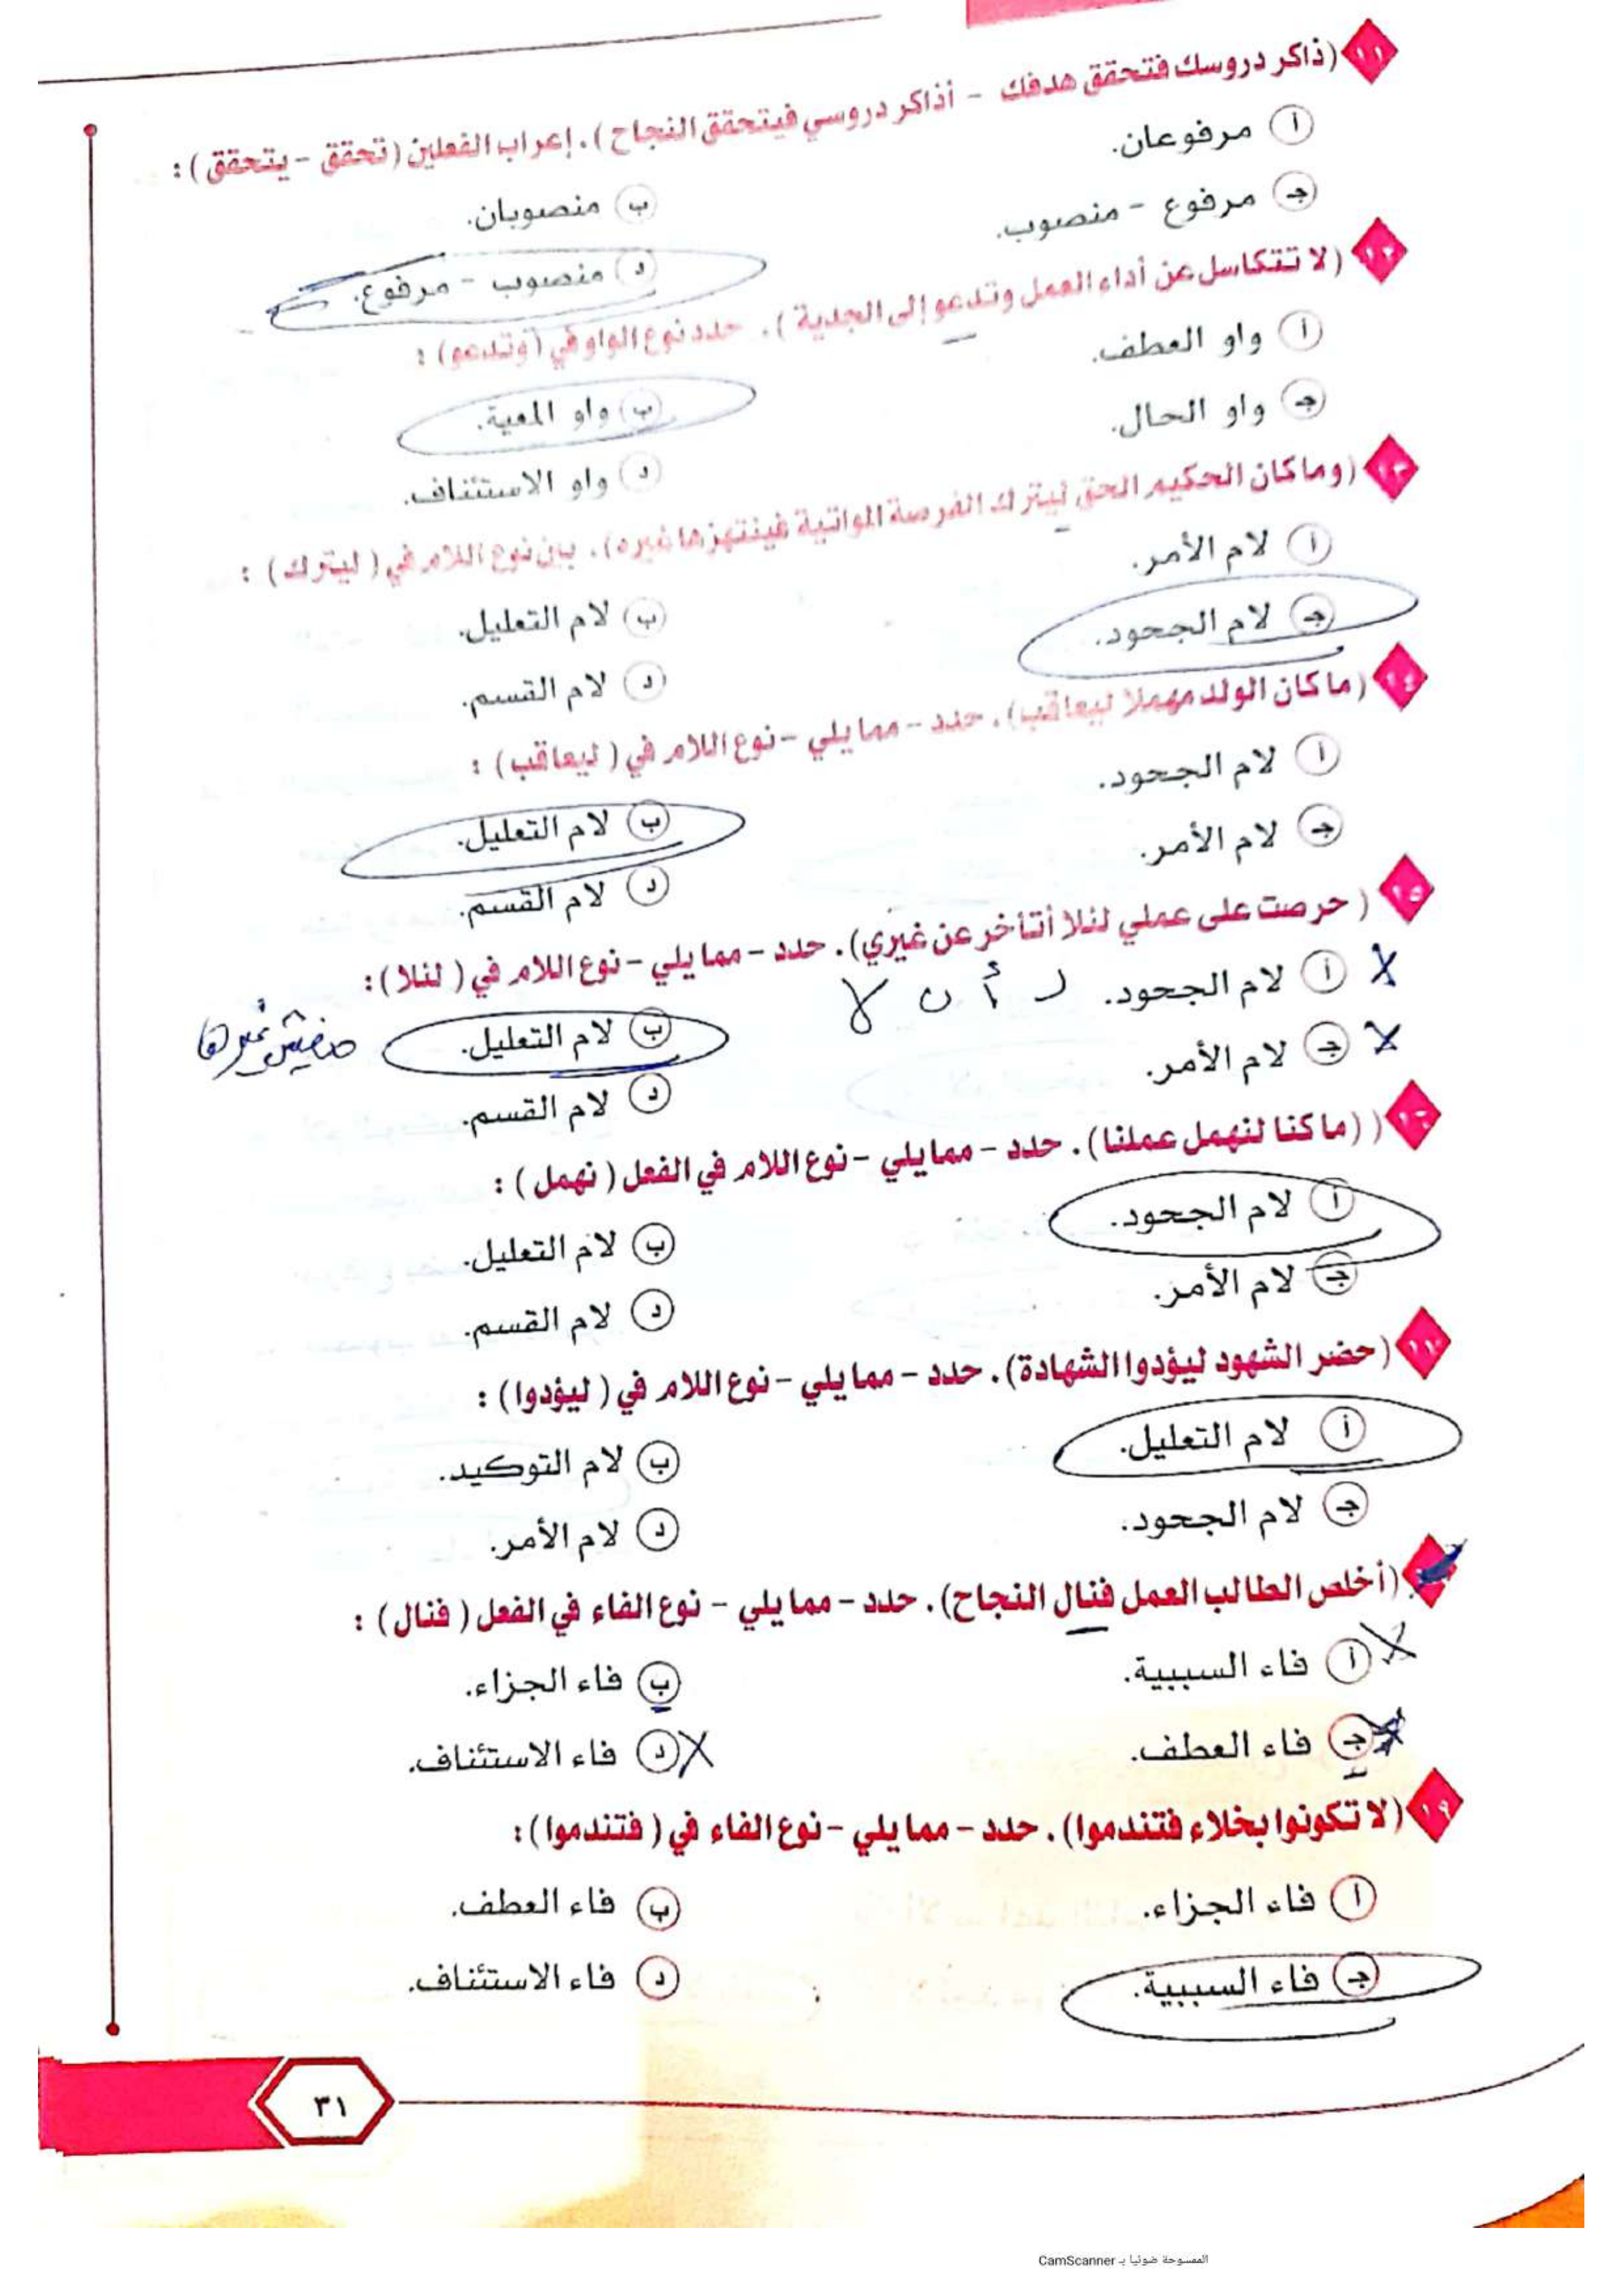 ١١ (ذاكر دروسك فتحقق هدفك - أذاكر دروسي فيتحقق النجاح). إعراب الفعلين (تحقق - يتحقق) :
أ مرفوعان.
ب منصوبان.
جـ مرفوع - منصوب.
د منصوب - مرفوع.
١٢ (لا تتكاسل عن أداء العمل وتدعو إلى الجدية). حدد نوع الواو في (وتدعو) :
أ واو العطف.
ب واو المعية.
جـ واو الحال.
د واو الاستئناف.
١٣ (وما كان الحكيم الحق ليترك الفرصة المواتية فينتهزها غيره). بين نوع اللام في (ليترك) :
أ لام الأمر.
ب لام التعليل.
جـ لام الجحود.
د لام القسم.
١٤ (ما كان الولد مهملا ليعاقب). حدد - مما يلي - نوع اللام في (ليعاقب) :
أ لام الجحود.
ب لام التعليل.
جـ لام الأمر.
د لام القسم.
١٥ (حرصت على عملي لئلا أتأخر عن غيري). حدد - مما يلي - نوع اللام في (لئلا) :
أ لام الجحود.
ل أن لا
ب لام التعليل.
مفيش غيرها
جـ لام الأمر.
د لام القسم.
١٦ ((ما كنا لنهمل عملنا). حدد - مما يلي - نوع اللام في الفعل (نهمل) :
أ لام الجحود.
ب لام التعليل.
جـ لام الأمر.
د لام القسم.
١٧ (حضر الشهود ليؤدوا الشهادة). حدد - مما يلي - نوع اللام في (ليؤدوا) :
أ لام التعليل.
ب لام التوكيد.
جـ لام الجحود.
د لام الأمر.
(أخلص الطالب العمل فنال النجاح). حدد - مما يلي - نوع الفاء في الفعل (فنال) :
أ فاء السببية.
ب فاء الجزاء.
جـ فاء العطف.
د فاء الاستئناف.
١٩ (لا تكونوا بخلاء فتندموا). حدد - مما يلي - نوع الفاء في (فتندموا) :
أ فاء الجزاء.
ب فاء العطف.
جـ فاء السببية.
د فاء الاستئناف.
٣١
الممسوحة ضوئيا بـ CamScanner